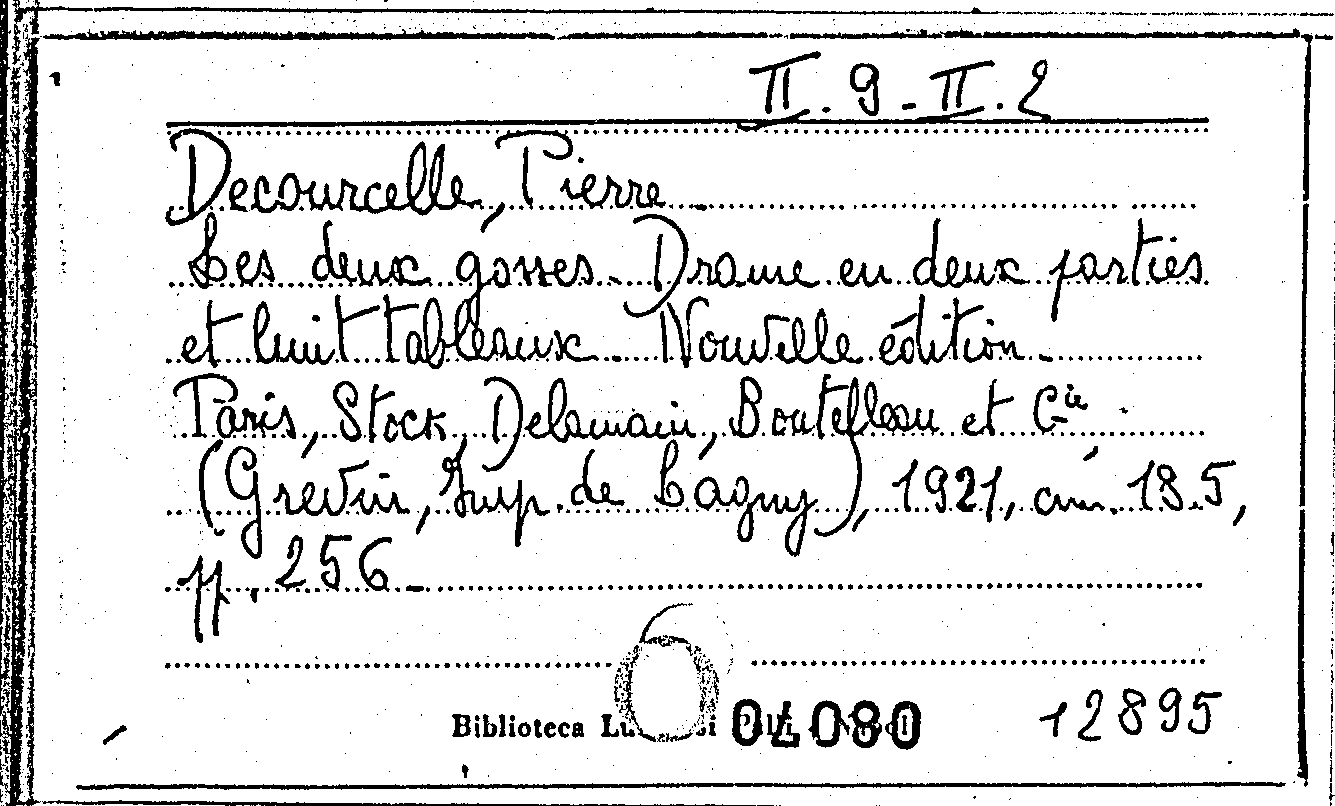 II. 9 - II. 2
Decourcelle, Pierre
Les deux gosses. Drame en deux parties
et huit tableaux. Nouvelle édition.
Paris, Stock, Delamain, Boutelleau et Cie
(Grevin, Imp. de Lagny), 1921, cm. 18.5,
pp. 256.
Biblioteca
04080
12895